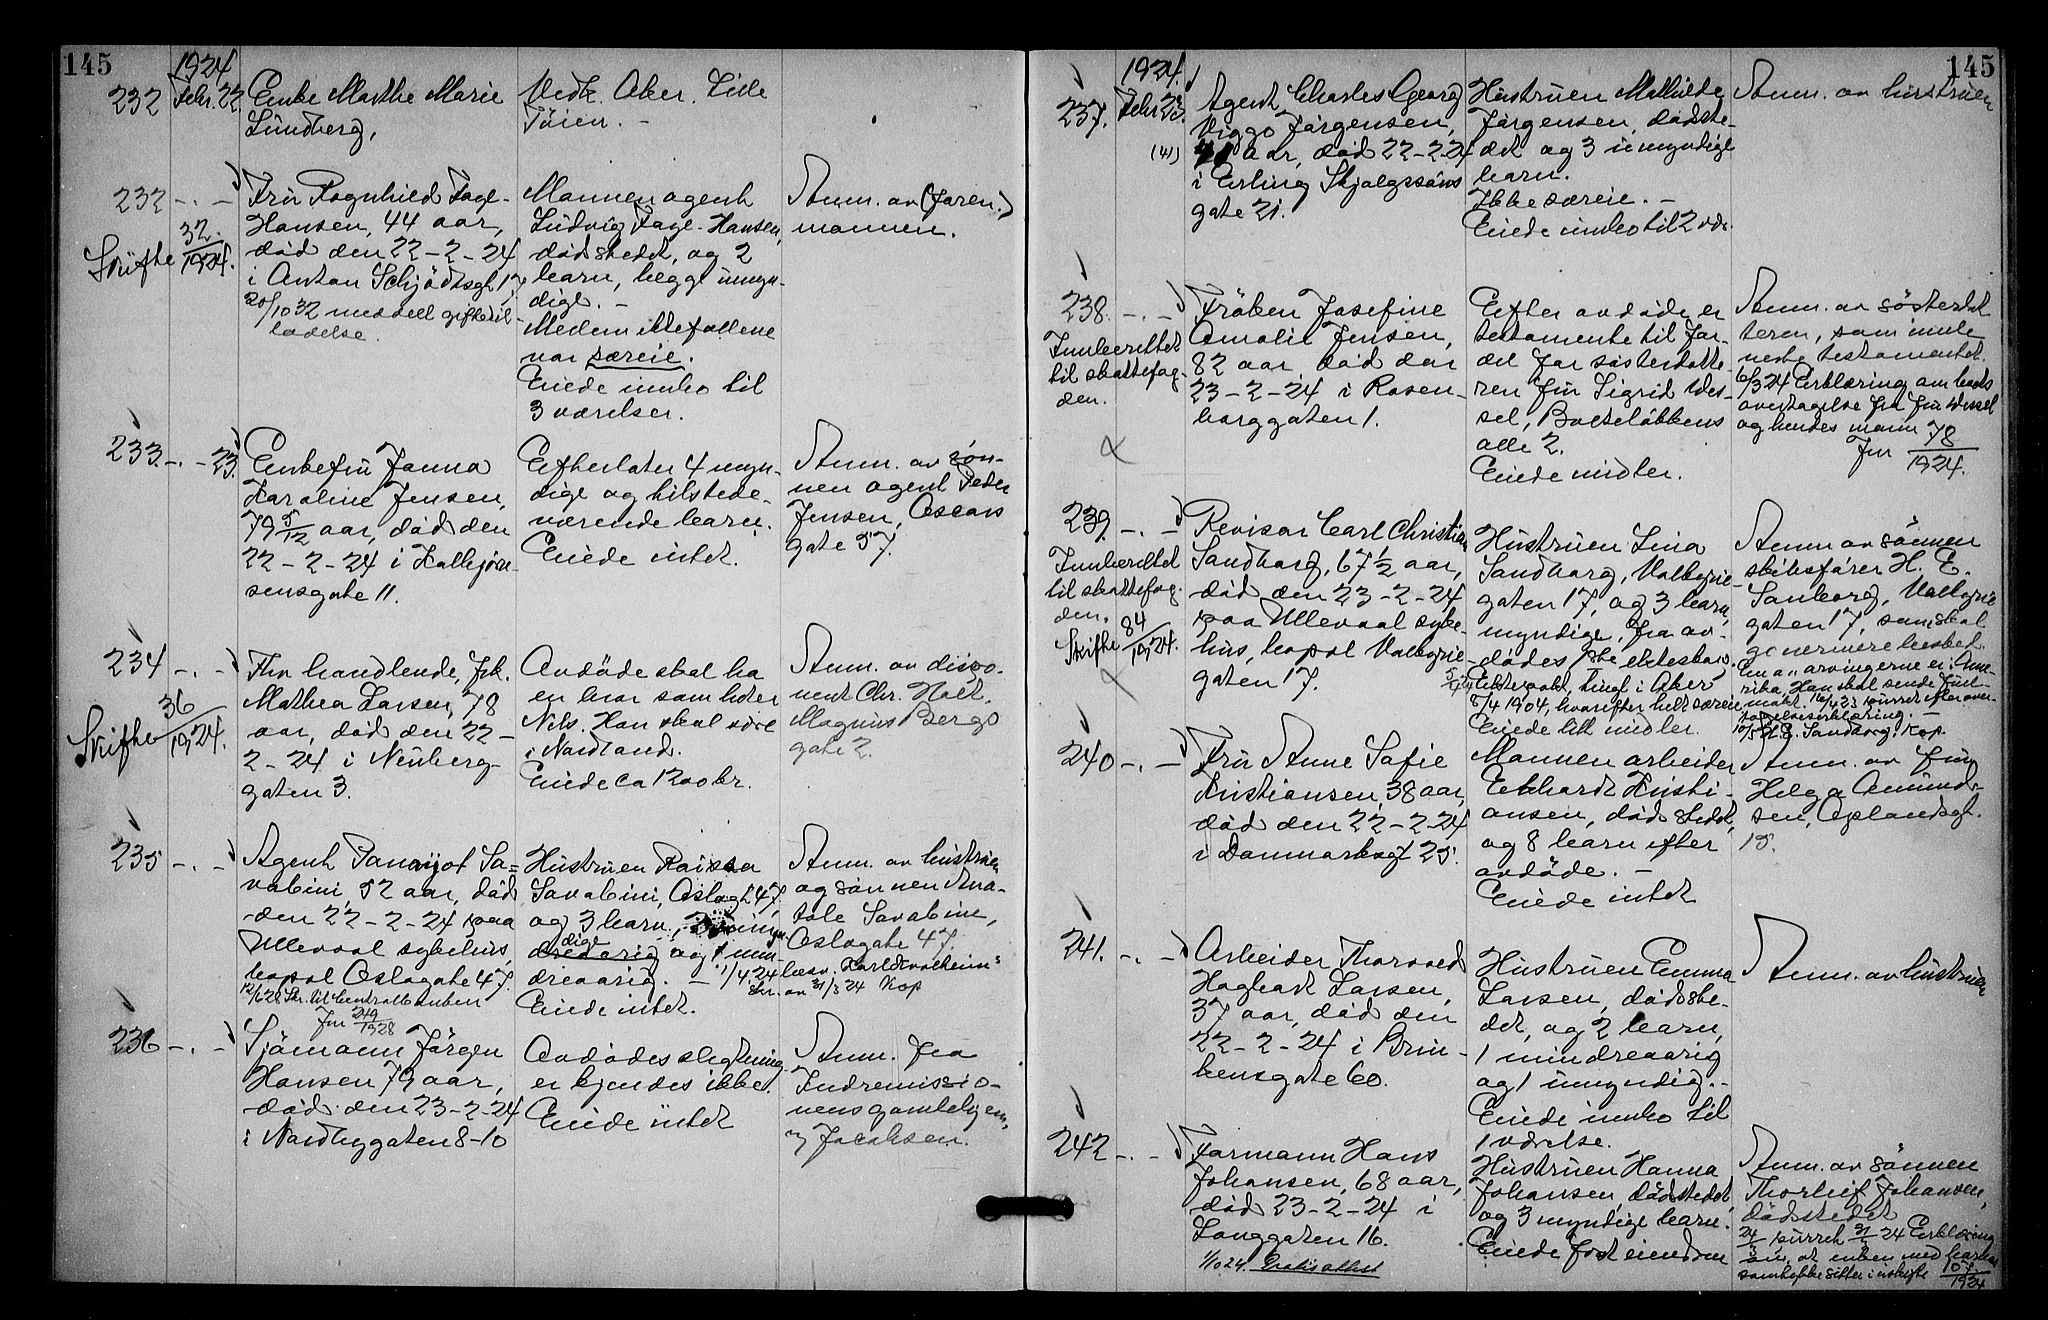 145
1924
232 Febr. 22 Enke Marthe Marie
Lundberg,
Vedk. Aker. Lille
Tøien. -
232 -.-
Fru Ragnhild Fage-
Hansen, 44 aar,
død den 22-2-24
i Anton Schjødtsgt 17
20/10 32 meddelt giftetil-
ladelse.
Skifte 32/1924.
Mannen agent
Ludvig Fage-Hansen,
dødsstedet, og 2
barn, begge umyn-
dige. -
Mellem ektefollene
var særeie.
Eiede innbo til
3 værelser.
Anm. av (faren.)
mannen.
233. -.- 23.
Enkefru Janna
Karoline Jensen,
79 5/12 aar, død den
22-2-24 i Kalbjørn-
sensgate 11.
Efterlater 4 myn-
dige og tilstede-
værende barn.
Eiede intet.
Anm. av søn-
nen agent Peder
Jensen, Oscars
gate 57.
234 -.-
Fhv handlende, frk.
Mathea Larsen, 78
aar, død den 22-
2-24 i Neuberg-
gaten 3.
Skifte 36/1924.
Avdøde skal ha
en bror som heter
Nils. Han skal være
i Nordland.
Eiede ca 1200 kr.
Anm. av dispo-
nent Chr. Holt,
Magnus Bergs
gate 2.
235 -.-
Agent Panayot Sa-
vabini, 52 aar, død
den 22-2-24 paa
Ullevaal sykehus,
bopæl Oslogate 47.
12/6 28 Skr. til Centralbanken
Jnr 249/1928
Hustruen Raissa
Savabini, Oslogt 47,
og 3 barn, 2 umyn-
dige
og 1 min-
dreaarig. -
Eiede intet.
Anm. av hustruen
og sønnen Ana-
tole Savabine,
Oslogate 47.
1/4 24 besv.
Skr. av 31/3 24 Kop
236 -.-
Sjømann Jørgen
Hansen 79 aar,
død den 23-2-24
i Nordbygaten 8-10
Avdødes slegtning-
er kjendes ikke.
Eiede intet
Anm. fra
Indremissio-
nens gamlehjem,
v/ Jacobsen.
145
1924.
237. Febr 23.
Agent Charles Georg
Viggo Jørgensen,
(41) 41 aar, død 22-2-24
i Erling Skjalgssøns
gate 21.
Hustruen Mathilde
Jørgensen, dødste-
det og 3 umyndige
barn.
Ikke særeie. -
Eiede innbo til 2 vær.
Anm. av hustruen
238. -.-
Innberettet
til skattefog-
den.
Frøken Josefine
Amalie Jensen,
82 aar, død den
23-2-24 i Rosen-
borggaten 1.
Efter avdøde er
testamente til for-
del for søsterdatte-
ren fru Sigrid Wes-
sel, Bolteløkkens
alle 2.
Eiede midler.
Anm. av søsterdat
teren, som innle
verte testamentet.
6/3 24 Erklæring om boets
overtagelse fra fru Wessel
og hendes mann
Jnr 78/1924.
239. -.-
Innberettet
til skattefog-
den.
Skifte 84/1924.
Revisor Carl Christian
Sandborg, 67 1/2 aar,
død den 23-2-24
paa Ullevaal syke-
hus, bopæl Valkyrie-
gaten 17.
Hustruen Lina
Sandborg, Valkyrie-
gaten 17, og 3 barn,
myndige, fra av-
dødes 1ste ekteskap,
Ektepakt, tingl i Aker
8/4 1904, hvorefter helt særeie
Eiede litt midler.
Anm av sønnen
skibsfører H. E.
Sandborg, Valkyrie
gaten 17, som skal
En av arvingerne er i Ame-
rika, Han skal sende full-
makt.
H. E. Sandborg. Kop
240 -.-
Fru Anne Sofie
Kristiansen, 38 aar,
død den 22-2-24
i Danmarksgt 25.
Mannen arbeider
Ekhardt Kristi-
ansen, dødsstedet,
og 8 barn efter
avdøde. -
Eiede intet
Anm. av fru
Helga Amund-
sen, Oplandsgt.
15.
241. -.-
Arbeider Thorvald
Hagbart Larsen,
37 aar, død den
22-2-24 i Brin-
kensgate 60.
Hustruen Emma
Larsen, dødsste-
det, og 2 barn,
1 mindreaarig
og 1 umyndig. -
Eiede innbo til
1 værelse.
Anm. av hustruen
242 -.-
Formann Hans
Johansen, 68 aar,
død 23-2-24 i
Langgaten 16.
1/10 24. Gratis attest
Hustruen Hanna
Johansen, dødsstedet,
og 3 myndige barn.
Eiede fast eiendom
Anm. av sønnen
Thorleif Johansen,
dødsstedet
purret 24 Erklæring
om, at enken med barna
sitter i uskifte 107/1924